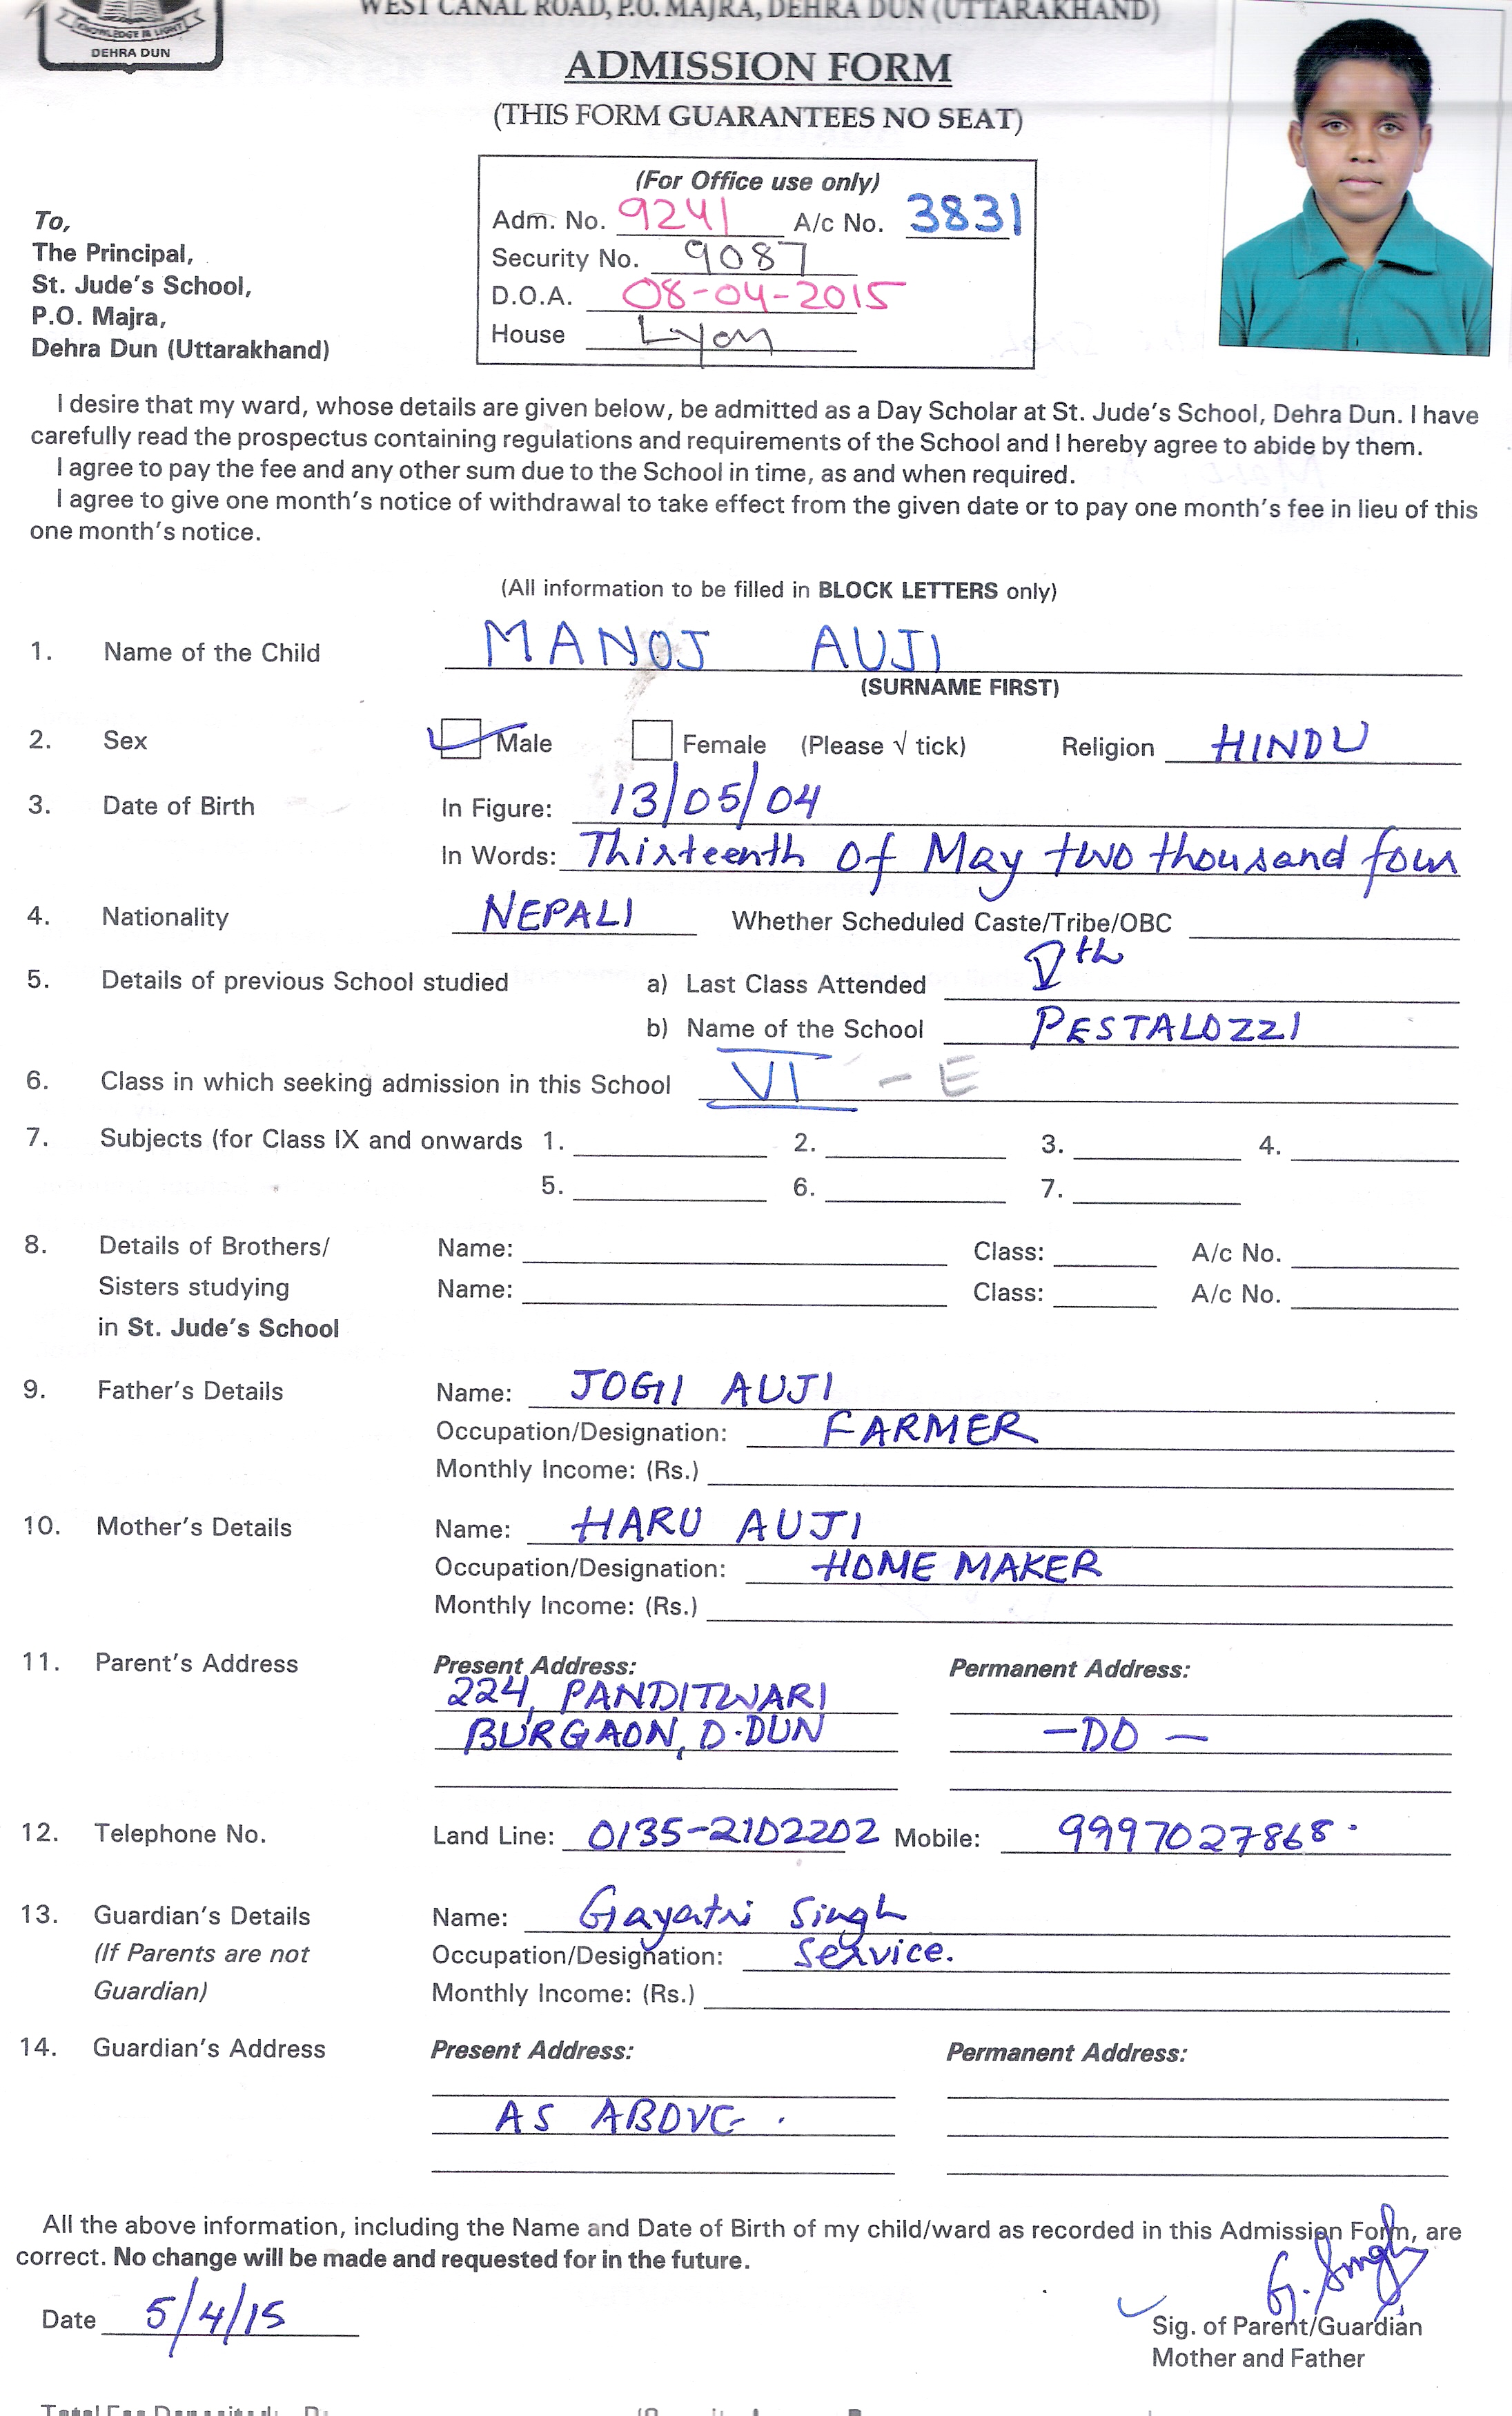 WEST CANAL ROAD, P.O. MAJRA, DEHRA DUN (UTTARAKHAND)
KNOWLEDGE IS LIGHT
DEHRA DUN
ADMISSION FORM
(THIS FORM GUARANTEES NO SEAT)
(For Office use only)
Adm. No. 9241 A/c No. 3831
Security No. 9087
D.O.A. 08-04-2015
House Lyon
To,
The Principal,
St. Jude's School,
P.O. Majra,
Dehra Dun (Uttarakhand)
I desire that my ward, whose details are given below, be admitted as a Day Scholar at St. Jude's School, Dehra Dun. I have
carefully read the prospectus containing regulations and requirements of the School and I hereby agree to abide by them.
I agree to pay the fee and any other sum due to the School in time, as and when required.
I agree to give one month's notice of withdrawal to take effect from the given date or to pay one month's fee in lieu of this
one month's notice.
(All information to be filled in BLOCK LETTERS only)
1. Name of the Child MANOJ AUJI
(SURNAME FIRST)
2. Sex Male Female (Please √ tick) Religion HINDU
3. Date of Birth In Figure: 13/05/04
In Words: Thirteenth of May two thousand four
4. Nationality NEPALI Whether Scheduled Caste/Tribe/OBC
5. Details of previous School studied a) Last Class Attended Vth
b) Name of the School PESTALOZZI
6. Class in which seeking admission in this School VI - E
7. Subjects (for Class IX and onwards 1. 2. 3. 4.
5. 6. 7.
8. Details of Brothers/ Name: Class: A/c No.
Sisters studying Name: Class: A/c No.
in St. Jude's School
9. Father's Details Name: JOGI AUJI
Occupation/Designation: FARMER
Monthly Income: (Rs.)
10. Mother's Details Name: HARU AUJI
Occupation/Designation: HOME MAKER
Monthly Income: (Rs.)
11. Parent's Address Present Address: Permanent Address:
224, PANDITWARI
BURGAON, D.DUN -DO-
12. Telephone No. Land Line: 0135-2102202 Mobile: 9997027868.
13. Guardian's Details Name: Gayatri Singh
(If Parents are not Occupation/Designation: Service.
Guardian) Monthly Income: (Rs.)
14. Guardian's Address Present Address: Permanent Address:
AS ABOVE .
All the above information, including the Name and Date of Birth of my child/ward as recorded in this Admission Form, are
correct. No change will be made and requested for in the future.
G. Singh
Date 5/4/15
Sig. of Parent/Guardian
Mother and Father